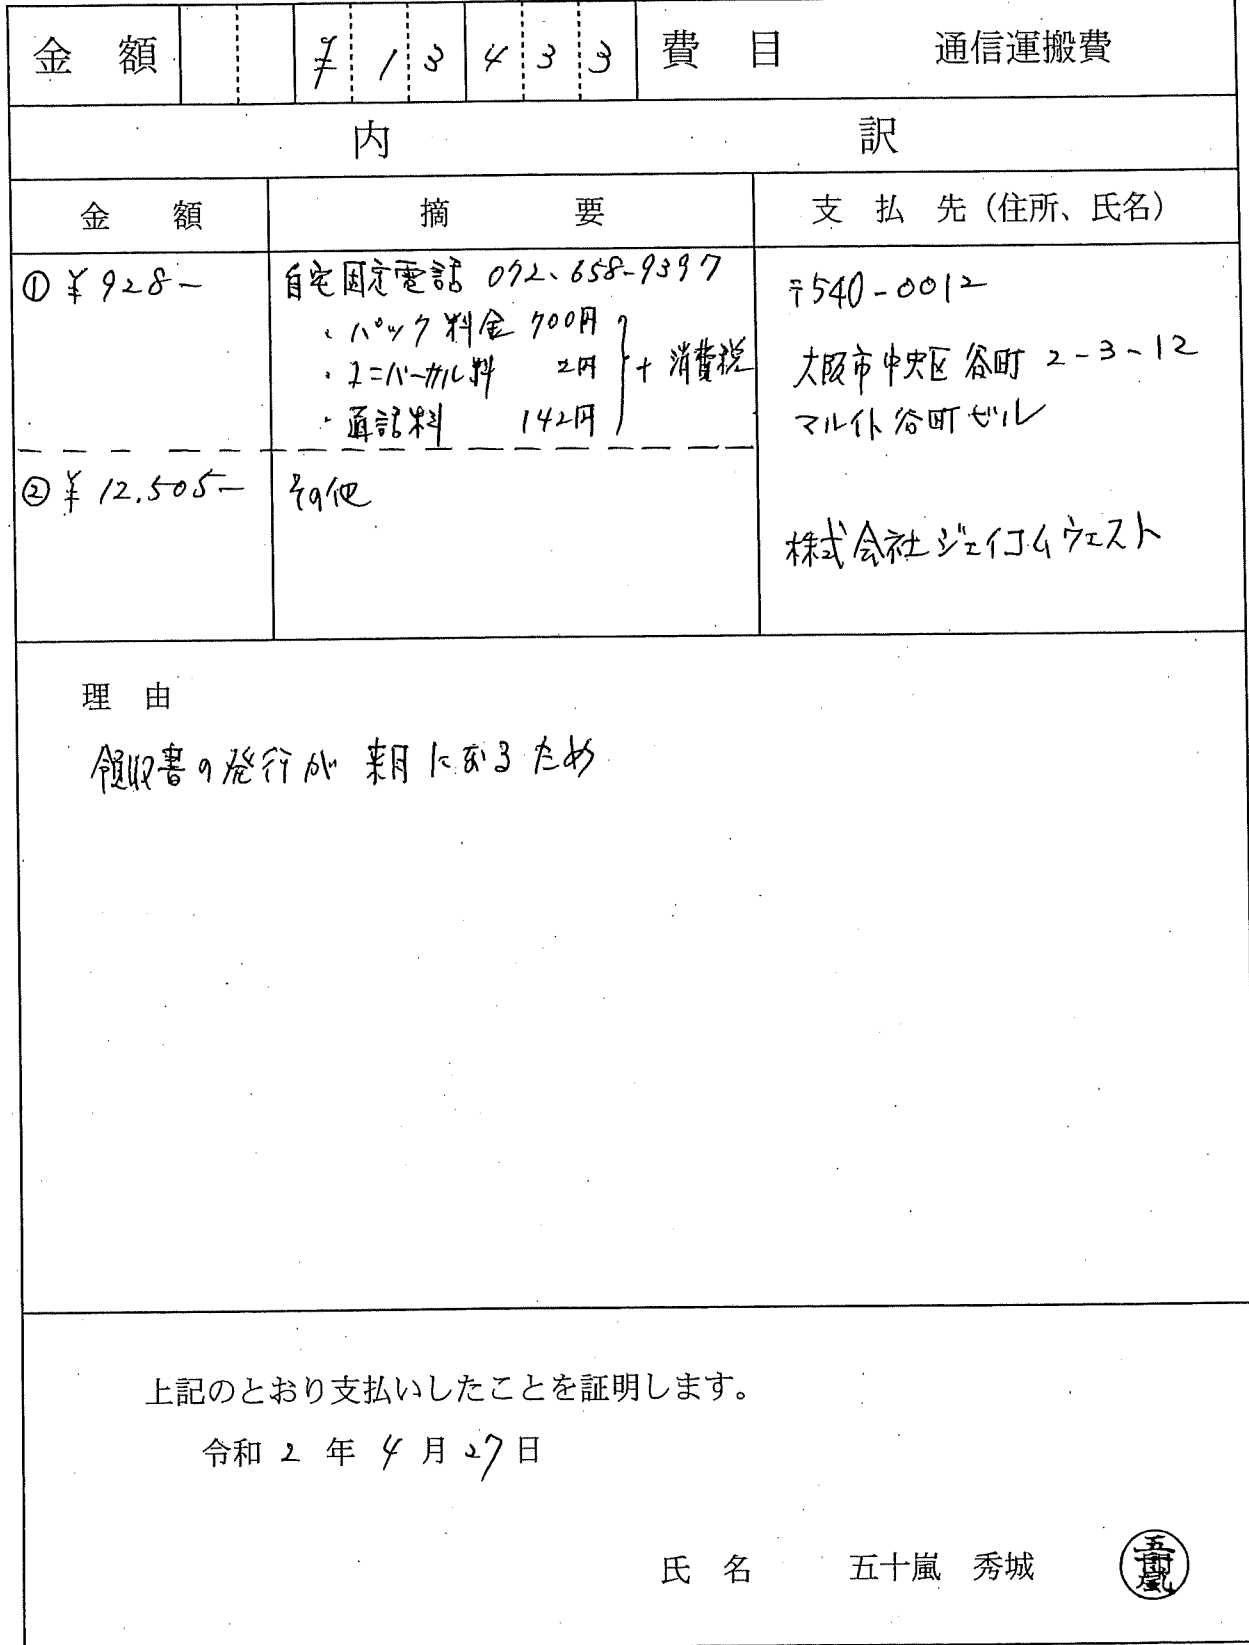 金額 ¥13433 費目 通信運搬費
内訳
金額 摘要 支払先（住所、氏名）
①¥928- 自宅固定電話 072-658-9397
・パック料金 700円
・ユニバーサル料 2円
・通話料 142円
+消費税
②¥12,505- その他
〒540-0012
大阪市中央区谷町2-3-12
マルイト谷町ビル
株式会社ジェイコムウエスト
理由
領収書の発行が来月になるため
上記のとおり支払いしたことを証明します。
令和2年4月27日
氏名 五十嵐 秀城 五十嵐